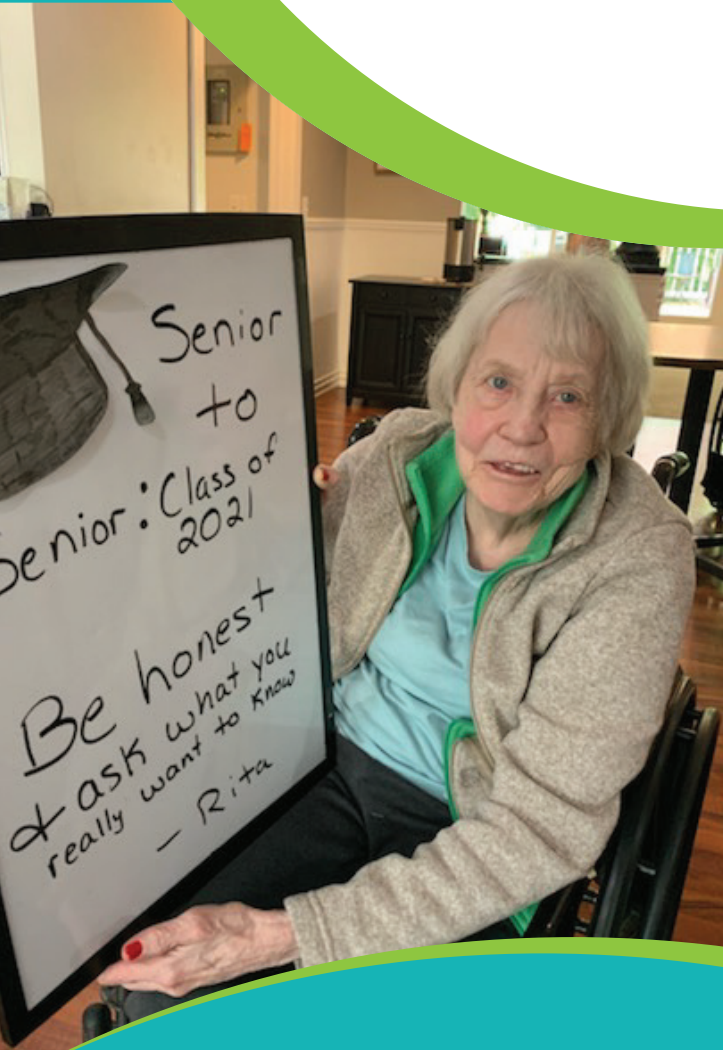 Senior
to
Senior: Class of
2021
Be honest
& ask what you
really want to know
- Rita